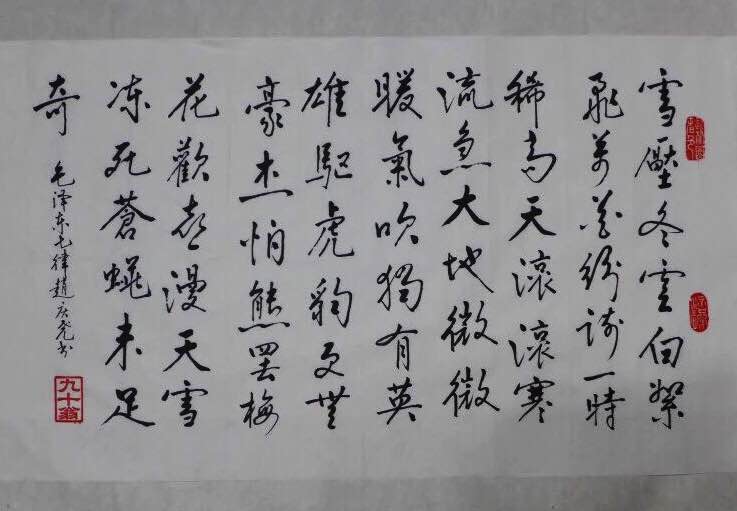 雪壓冬雲白絮
飛萬花紛謝一時
稀高天滚滚寒
流急大地微微
暖氣吹獨有英
雄驅虎豹更無
豪杰怕熊罴梅
花歡喜漫天雪
冻死蒼蠅未足
奇
毛泽东七律趙庆尧书
九十翁